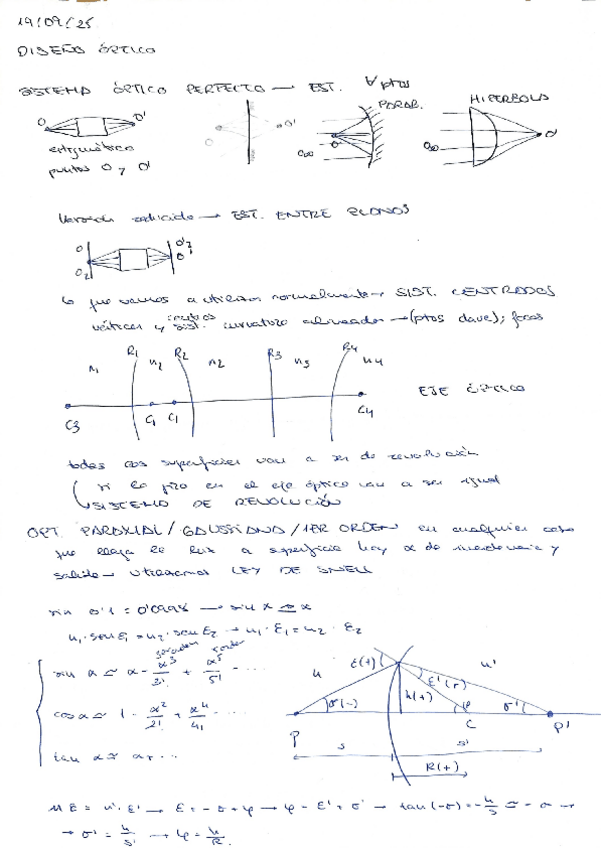 19/09/25
DISEÑO ÓPTICO
SISTEMA ÓPTICO PERFECTO → EST. ∀ptos
O O'
estigmático
puntos O y O'
O'
PARAB.
O∞ O'
HIPERBOLA
O∞ O'
Versión reducida → EST. ENTRE PLANOS
O O'2
O2 O'
lo que vamos a utilizar normalmente → SIST. CENTRADOS
vértices y centros curvatura alineados → (ptos clave); focos
n1 R1 n2 R2 n2 R3 n3 R4 n4
C3 C1 C1 C4 EJE ÓPTICO
todas las superficies van a ser de revolución
si lo giro en el eje óptico van a ser igual
SISTEMA DE REVOLUCIÓN
OPT. PARAXIAL / GAUSSIANA / 1ER ORDEN en cualquier caso
que llega la luz a superficie hay α de incidencia y
salida → utilizamos LEY DE SNELL
sin 0'1 = 0'0998 → sin x ≃ x
n1·senε1 = n2·senε2 → n1·ε1 = n2·ε2
sin α ≃ α - α³/3! + α⁵/5! ...
cos α ≃ 1 - α²/2! + α⁴/4! ...
tan α ≃ α + ...
n ε(+) n'
ε'(+)
σ(-) h(+) φ σ'
P C P'
s s'
R(+)
n ε = n'·ε' → ε = -σ + φ → φ - ε' = σ' → tan(-σ) = -h/s ≃ -σ →
→ σ' = h/s' → φ = h/R